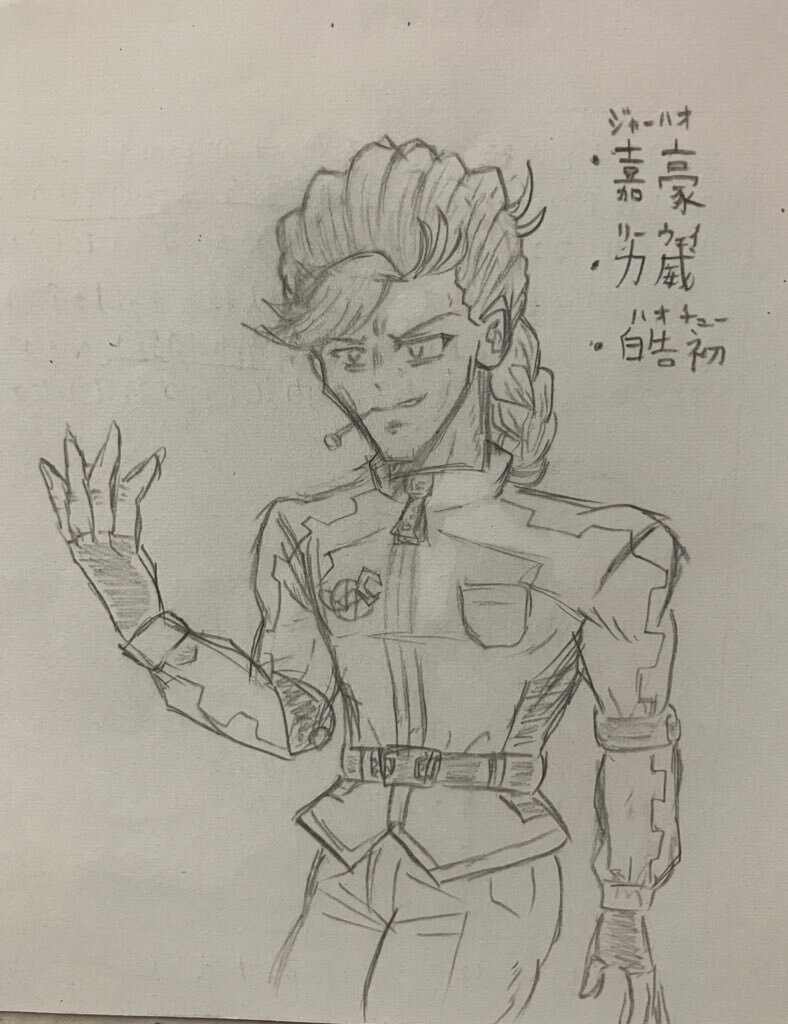 ジャーハオ
・嘉豪
リーウェイ
・力威
ハオチュー
・皓初